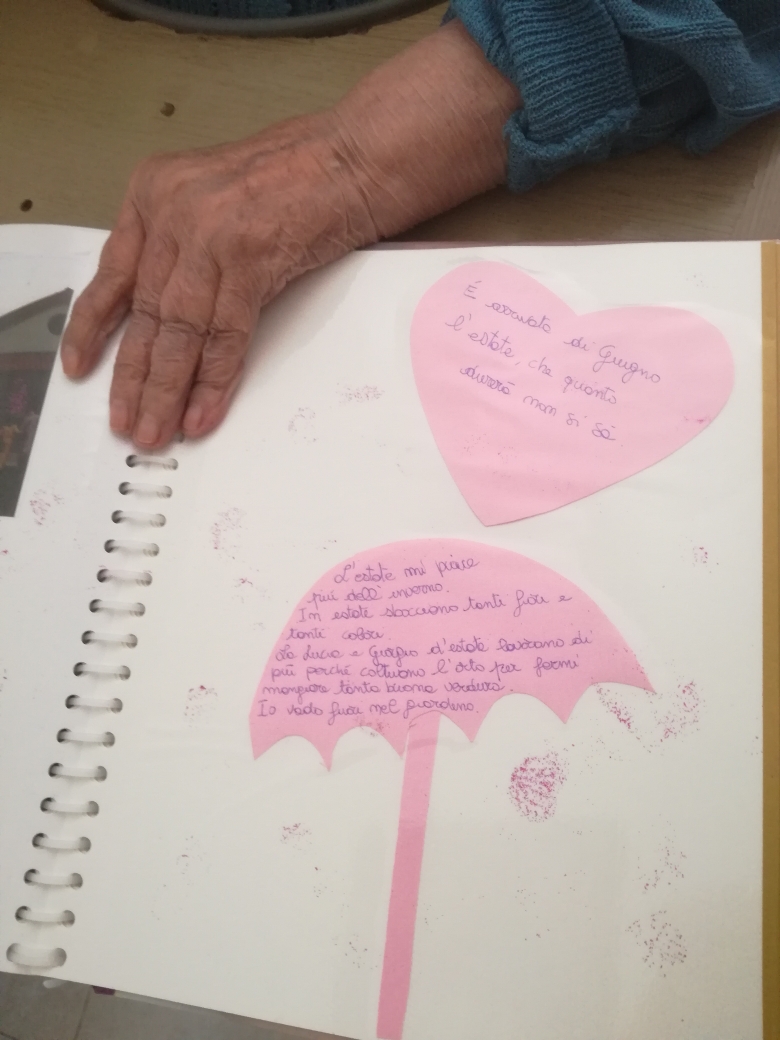 É arrivato di Giugno
l'estate, che quanto
durerà non si sà
L'estate mi piace
più dell' inverno.
In estate sbocciano tanti fiori e
tanti colori.
La Lucia e Giorgio d'estate lavorano di
più perché coltivano l'orto per farmi
mangiare tanta buona verdura.
Io vado fuori nel giardino.